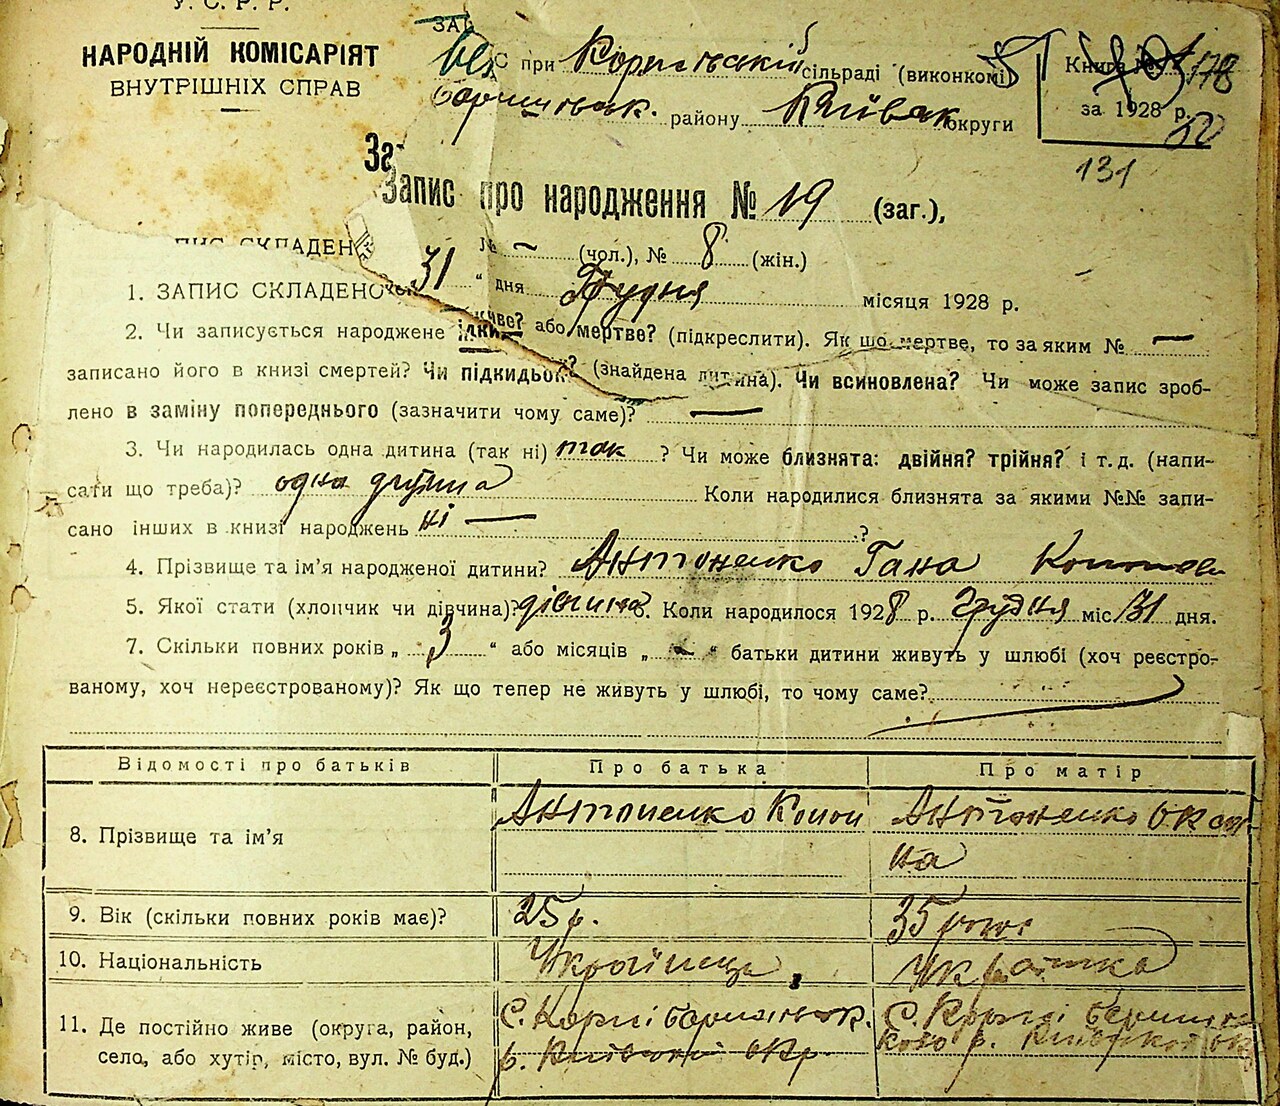 У. С. Р. Р.
НАРОДНІЙ КОМІСАРІЯТ
ВНУТРІШНІХ СПРАВ
ЗАГ
С при сільраді (виконкомі)
району округи
Книга №
178
за 1928 р.
131
За
Запис про народження № 19 (заг.),
№ — (чол.), № 8 (жін.)
ПИС СКЛАДЕНО
1. ЗАПИС СКЛАДЕНО 31 " дня Грудня місяця 1928 р.
2. Чи записується народжене живе? або мертве? (підкреслити). Як що мертве, то за яким № —
записано його в книзі смертей? Чи підкидьок? (знайдена дитина). Чи всиновлена? Чи може запис зроб-
лено в заміну попереднього (зазначити чому саме)? —
3. Чи народилась одна дитина (так ні) так ? Чи може близнята: двійня? трійня? і т. д. (напи-
сати що треба)? одна дитина Коли народилися близнята за якими №№ запи-
сано інших в книзі народжень ні — ?
4. Прізвище та ім'я народженої дитини? Антоненко Гана
5. Якої стати (хлопчик чи дівчина)? дівчина 6. Коли народилося 1928 р. Грудня міс 31 дня.
7. Скільки повних років „ 3 “ або місяців „ — “ батьки дитини живуть у шлюбі (хоч реєстро-
ваному, хоч нереєстрованому)? Як що тепер не живуть у шлюбі, то чому саме?
Відомості про батьків Про батька Про матір
8. Прізвище та ім'я Антоненко Конон Антоненко Окса
на
9. Вік (скільки повних років має)? 25 р. 35 років
10. Національність Українець Українка
11. Де постійно живе (округа, район, с. с.
село, або хутір, місто, вул. № буд.) р. Київської окр. р. Київської окр